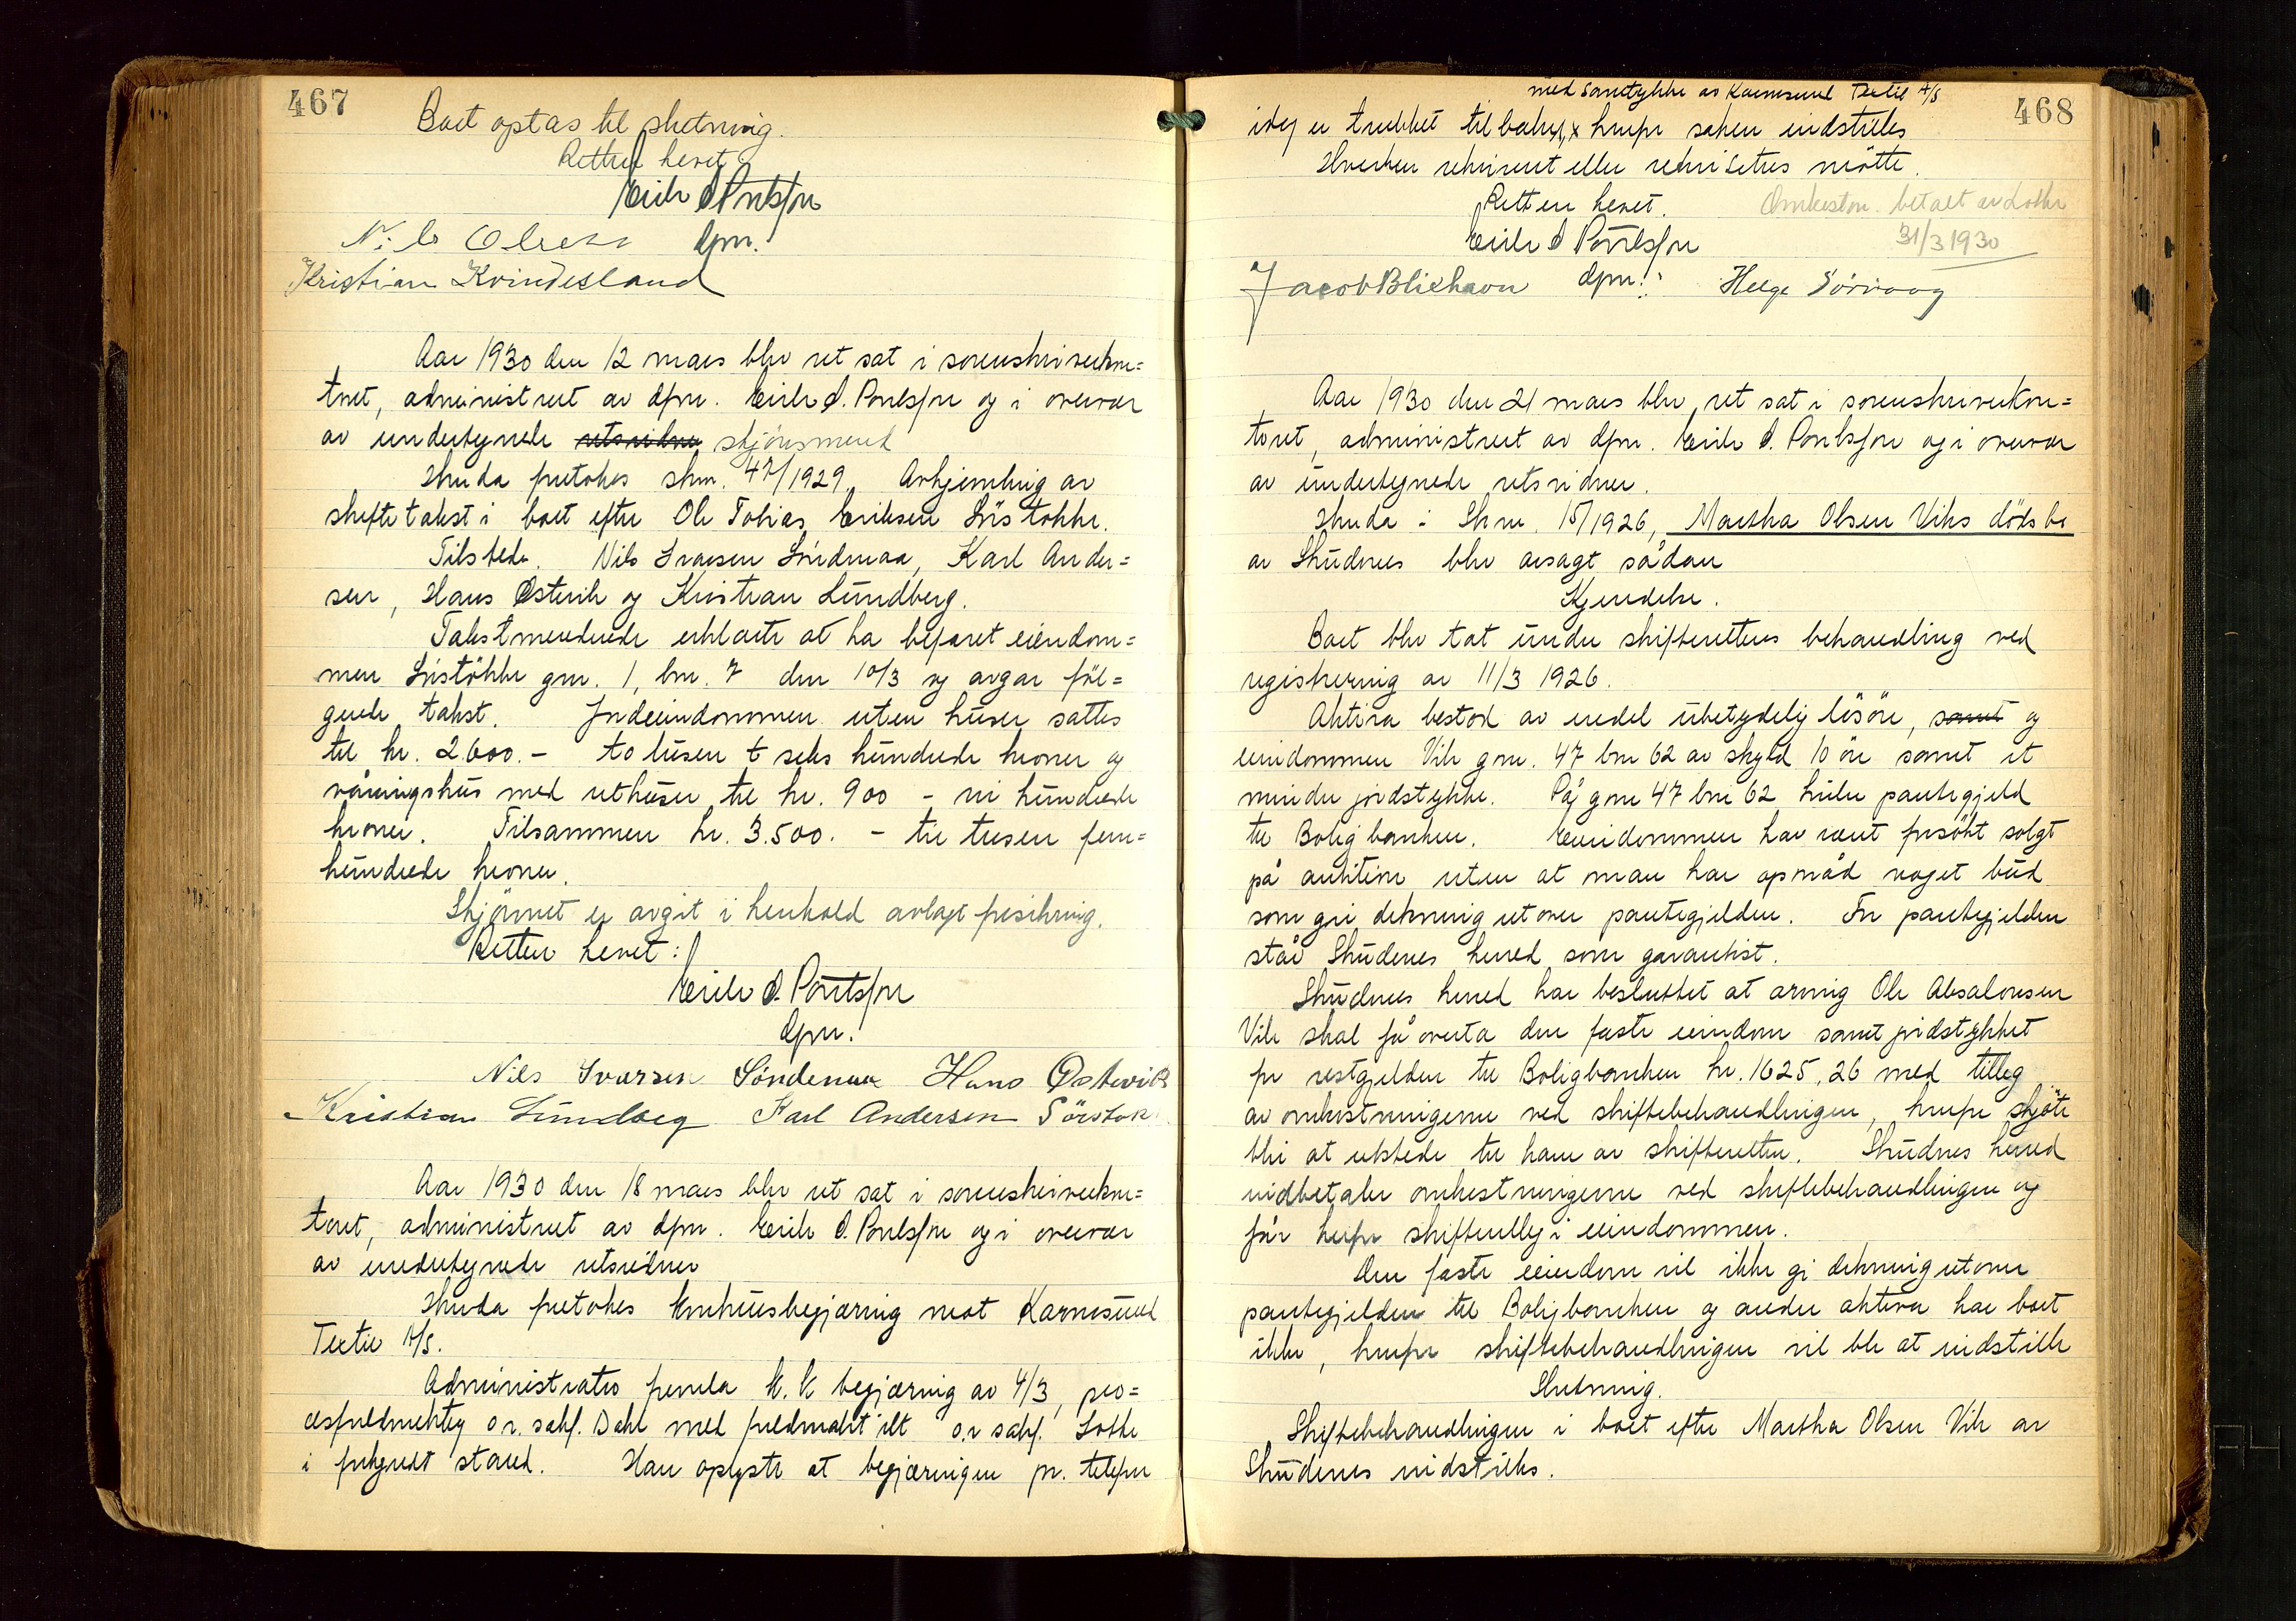 467
Boet optas til slutning.
Retten hevet
Eirik S Poulsson
dfm.
Nils Olsen
Kristian Kvindesland
Aar 1930 den 12 mars blev ret sat i sorenskriverkon=
toret, administrert av dfm. Eirik S. Poulsson og i overvær
av undertegnede retsvidner skjönsmend
Hvoda foretokes skm. 47/1929. Avhjemling av
skiftetakst i boet efter Ole Tobias Eriksen Sörstokke.
Tilstede. Nils Ivarsen Söndenaa, Karl Ander=
sen, Hans Østevik og Kristian Lundberg.
Takstmendene erklærte at ha befaret eiendom=
men Sörstokke gnr. 1, bnr. 7 den 10/3 og avgav föl=
gende takst. Jordeiendommen uten huser sattes
til kr. 2.600.- to tusen & seks hundrede kroner og
våningshus med uthuser til kr. 900 - ni hundrede
kroner. Tilsammen kr. 3.500. - tre tusen fem=
hundrede kroner.
Skjönnet er avgit i henhold avlagt forsikring.
Retten hevet:
Eirik S. Poulsson
dfm.
Nils Ivarsen Söndenaa Hans Østevik
Kristian Lundberg Karl Andersen Sörstok
Aar 1930 den 18 mars blev ret sat i sorenskriverkon=
toret, administrert av dfm. Eirik S. Poulsson og i overvær
av undertegnede retsvidner
Hvoda foretokes konkursbegjæring mot Karmsund
Textil A/S.
Administrator fremla k.k begjæring av 4/3, pro=
cesfuldmektig o.r. sakf. Dahl med fuldmakt til o.r sakf. Lothe
i forbyndt stand. Han oplyste at begjæringen pr. telefon
468
med samtykke av Karmsund Textil A/S
idag er trukket tilbake, x hvorfor saken indstilles
Hverken rekvirent eller rekvisitus mötte.
Retten hevet.
Omkostn. betalt av Lothe
31/3 1930
Eirik S Poulsson
dfm.
Jacob Blikshavn Helge Sörvaag
Aar 1930 den 21 mars blev ret sat i sorenskriverkon=
toret, administrert av dfm. Eirik S. Poulsson og i overvær
av undertegnede retsvidner.
Hvoda i Skm. 15/1926, Martha Olsen Viks dödsbo
av Skudnes blev avsagt sådan
Kjendelse.
Boet blev tat under skifterettens behandling ved
registrering av 11/3 1926.
Aktiva bestod av endel ubetydelig lösöre, samt og
eiendommen Vik gnr. 47 bnr 62 av skyld 10 öre samt et
mindre jordstykke. På gnr 47 bnr 62 hviler pantegjeld
til Boligbanken. Eiendommen har været forsökt solgt
på auktion uten at man har opnåd noget bud
som gir dekning utover pantegjelden. For pantegjelden
står Skudenes herred som garantist.
Skudnes herred har besluttet at arving Ole Absalonsen
Vik skal få overta den faste eiendom samt jordstykket
for restgjelden til Boligbanken kr. 1625,26 med tilleg
av omkostningerne ved skiftebehandlingen, hvorfor skjöte
blir at utstede til ham av skifteretten. Skudnes herred
indbetaler omkostningerne ved skiftebehandlingen og
får herfor skifteutlæg i eiendommen.
Den faste eiendom vil ikke gi dekning utover
pantegjelden til Boligbanken og andre aktiva har boet
ikke, hvorfor skiftebehandlingen vil bli at indstille
Slutning.
Skiftebehandlingen i boet efter Martha Olsen Vik av
Skudenes indstilles.